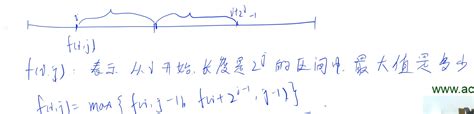 i+2^j-1
f(i,j)
f(i,j): 表示 从i开始, 长度是2^j的区间中, 最大值是多少
www.ac
f(i,j)= max{f(i,j-1), f(i+2^{j-1}, j-1)}